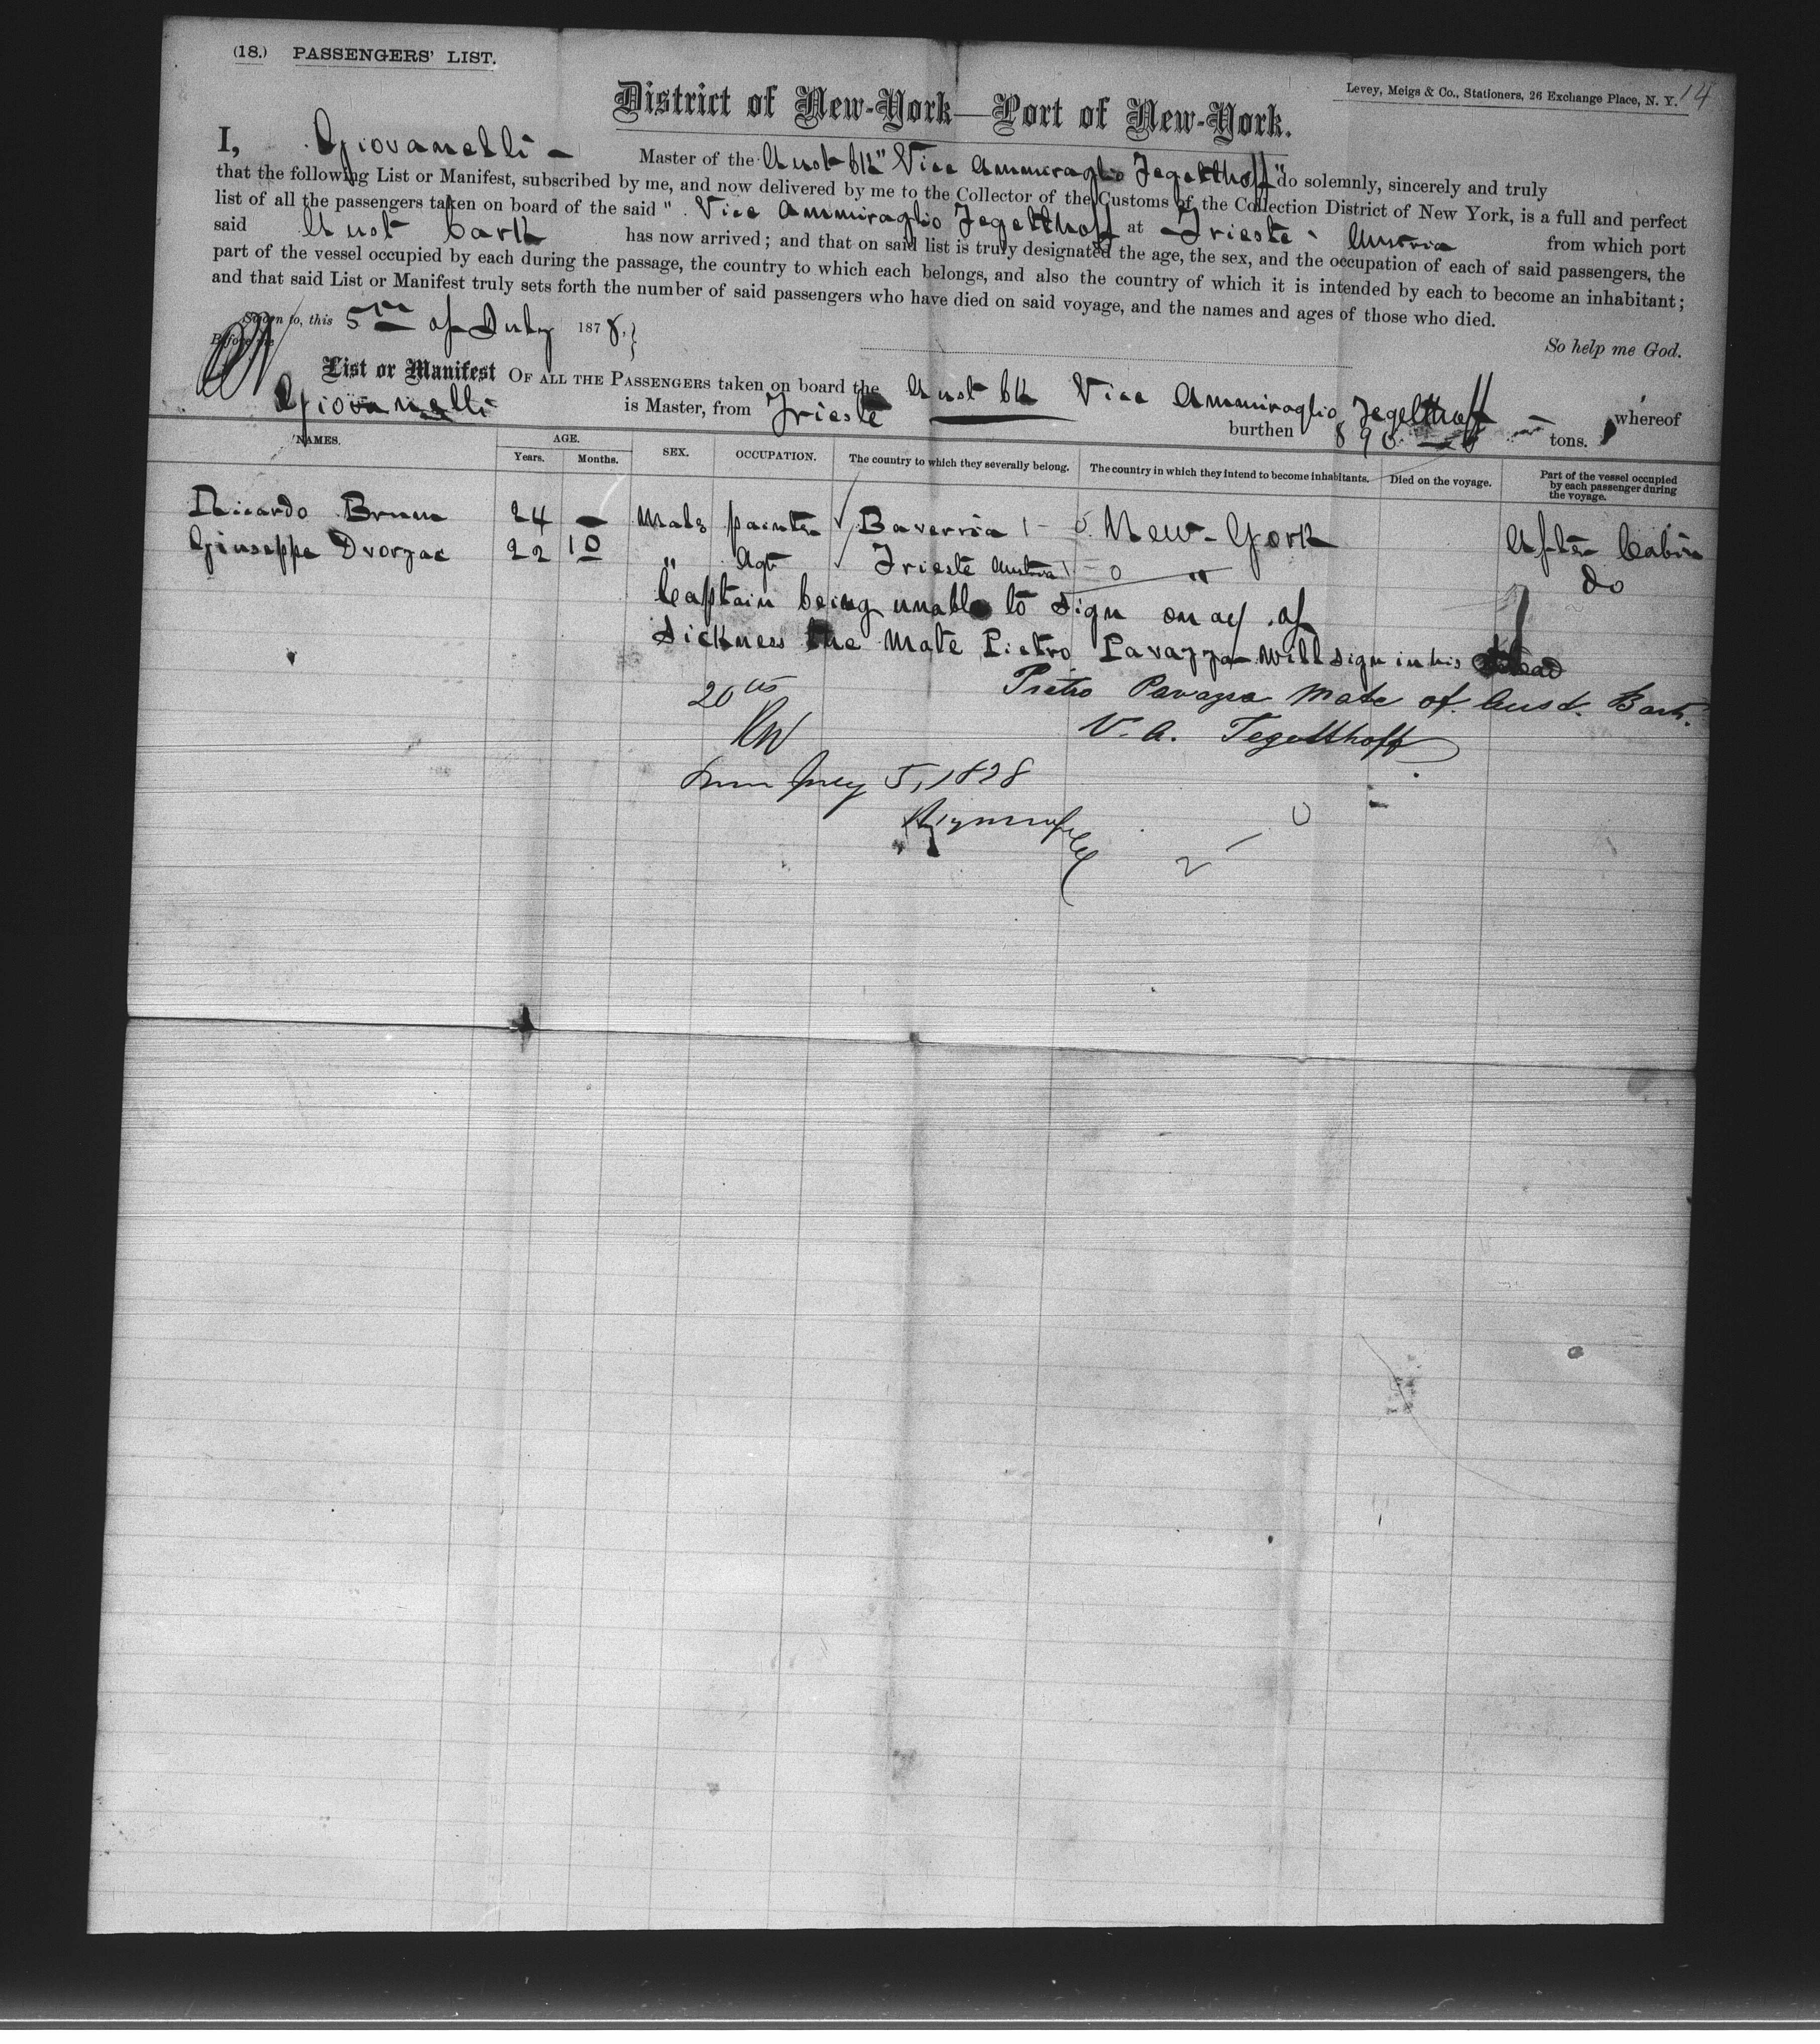 (18.) PASSENGERS' LIST.
Levey, Meigs & Co., Stationers, 26 Exchange Place, N. Y. 14
District of New-York—Port of New-York.
I, Giovanelli - Master of the Aust bk "Vice Ammiraglio Tegetthoff" do solemnly, sincerely and truly
that the following List or Manifest, subscribed by me, and now delivered by me to the Collector of the Customs of the Collection District of New York, is a full and perfect
list of all the passengers taken on board of the said " Vice Ammiraglio Tegetthoff at Trieste - Austria from which port
said Aust bark has now arrived; and that on said list is truly designated the age, the sex, and the occupation of each of said passengers, the
part of the vessel occupied by each during the passage, the country to which each belongs, and also the country of which it is intended by each to become an inhabitant;
and that said List or Manifest truly sets forth the number of said passengers who have died on said voyage, and the names and ages of those who died.
Sworn to, this 5th of July 1878.} So help me God.
Before me
List or Manifest OF ALL THE PASSENGERS taken on board the Aust bk Vice Ammiraglio Tegetthoff whereof
Giovanelli is Master, from Trieste burthen 890 tons.
NAMES. AGE. SEX. OCCUPATION. The country to which they severally belong. The country in which they intend to become inhabitants. Died on the voyage. Part of the vessel occupied by each passenger during the voyage.
Years. Months.
Riccardo Brunn 24 - Male painter Baverria New-York After Cabin
Giuseppe Dvorzac 22 10 " Agt Trieste Austria " do
Captain being unable to sign on a/c of
sickness the Mate Pietro Pavazza will sign in his stead
20 cts Pietro Pavazza Mate of Aust. Bark.
RW V. A. Tegetthoff
July 5, 1878
2